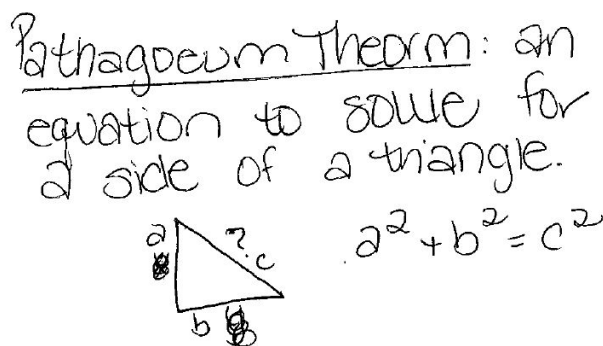 Pathagoeum Theorm: an
equation to solve for
a side of a triangle.
a
?
c
a² + b² = c²
b